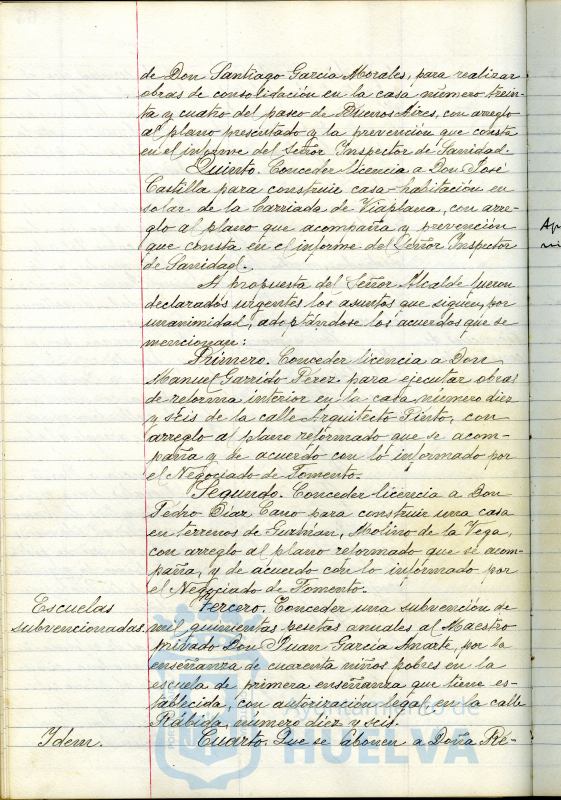 de Don Santiago García Morales, para realizar
obras de consolidación en la casa número trein-
ta y cuatro del paseo de Buenos Aires, con arreglo
al plano presentado y la prevención que consta
en el informe del Señor Inspector de Sanidad.
Quinto. Conceder licencia a Don José
Castilla para construir casa-habitación en
solar de la Barriada de Viaplana, con arre-
glo al plano que acompaña y prevención
que consta en el informe del Señor Inspector
de Sanidad.
A propuesta del Señor Alcalde fueron
declarados urgentes los asuntos que siguen, por
unanimidad, adoptándose los acuerdos que se
mencionan:
Primero. Conceder licencia a Don
Manuel Garrido Pérez para ejecutar obras
de reforma interior en la casa número diez
y séis de la calle Arquitecto Pinto, con
arreglo al plano reformado que se acom-
paña y de acuerdo con lo informado por
el Negociado de Fomento.
Segundo. Conceder licencia a Don
Pedro Díaz Cano para construir una casa
en terrenos de Guzmán, Molino de la Vega,
con arreglo al plano reformado que se acom-
paña, y de acuerdo con lo informado por
el Negociado de Fomento.
Escuelas
subvencionadas.
Tercero. Conceder una subvención de
mil quinientas pesetas anuales al Maestro
privado Don Juan García, por la
enseñanza de cuarenta niños pobres en la
escuela de primera enseñanza que tiene es-
tablecida, con autorización legal en la calle
Rábida, número diez y seis.
Idem.
Cuarto. Que se abonen a Doña Re-
Ayuntamiento de
HUELVA